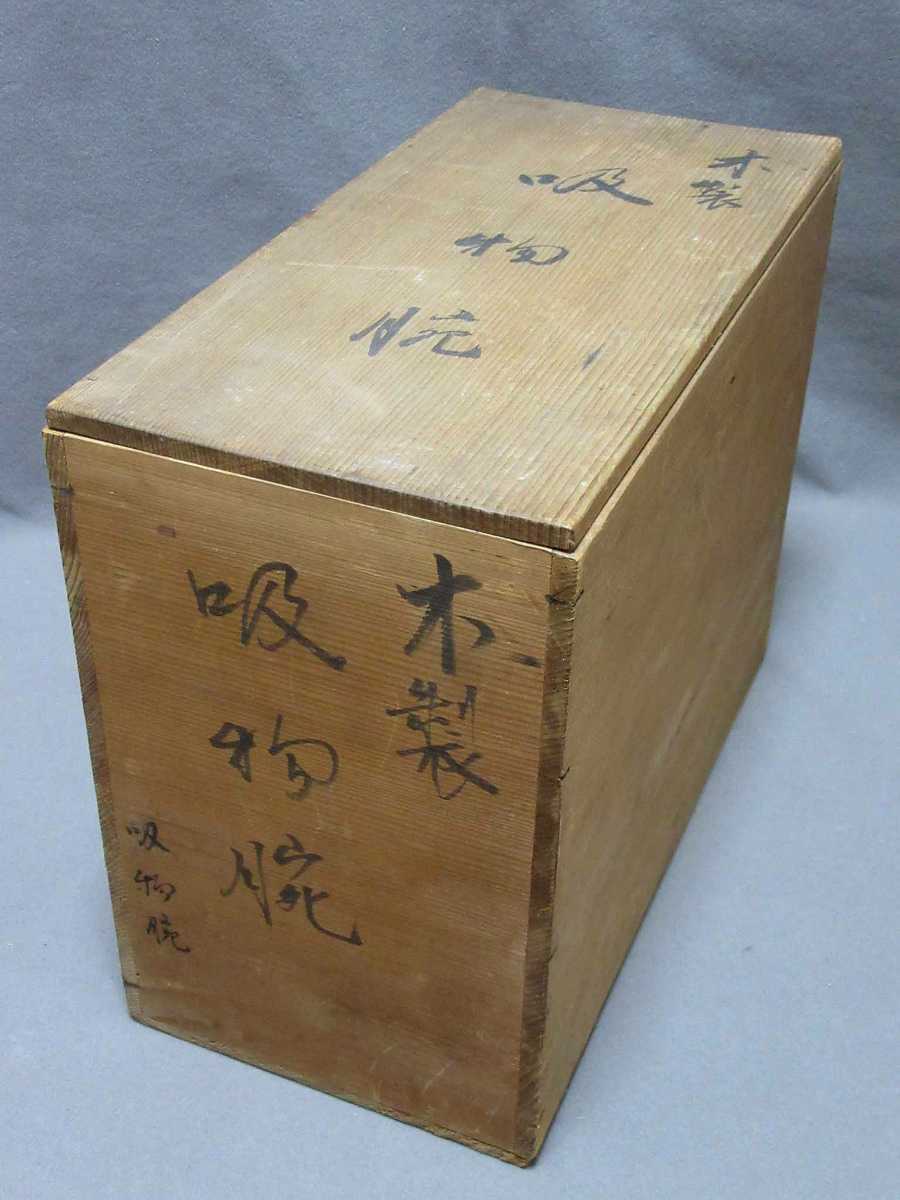 木製
吸物腕
木製
吸物腕
吸物腕